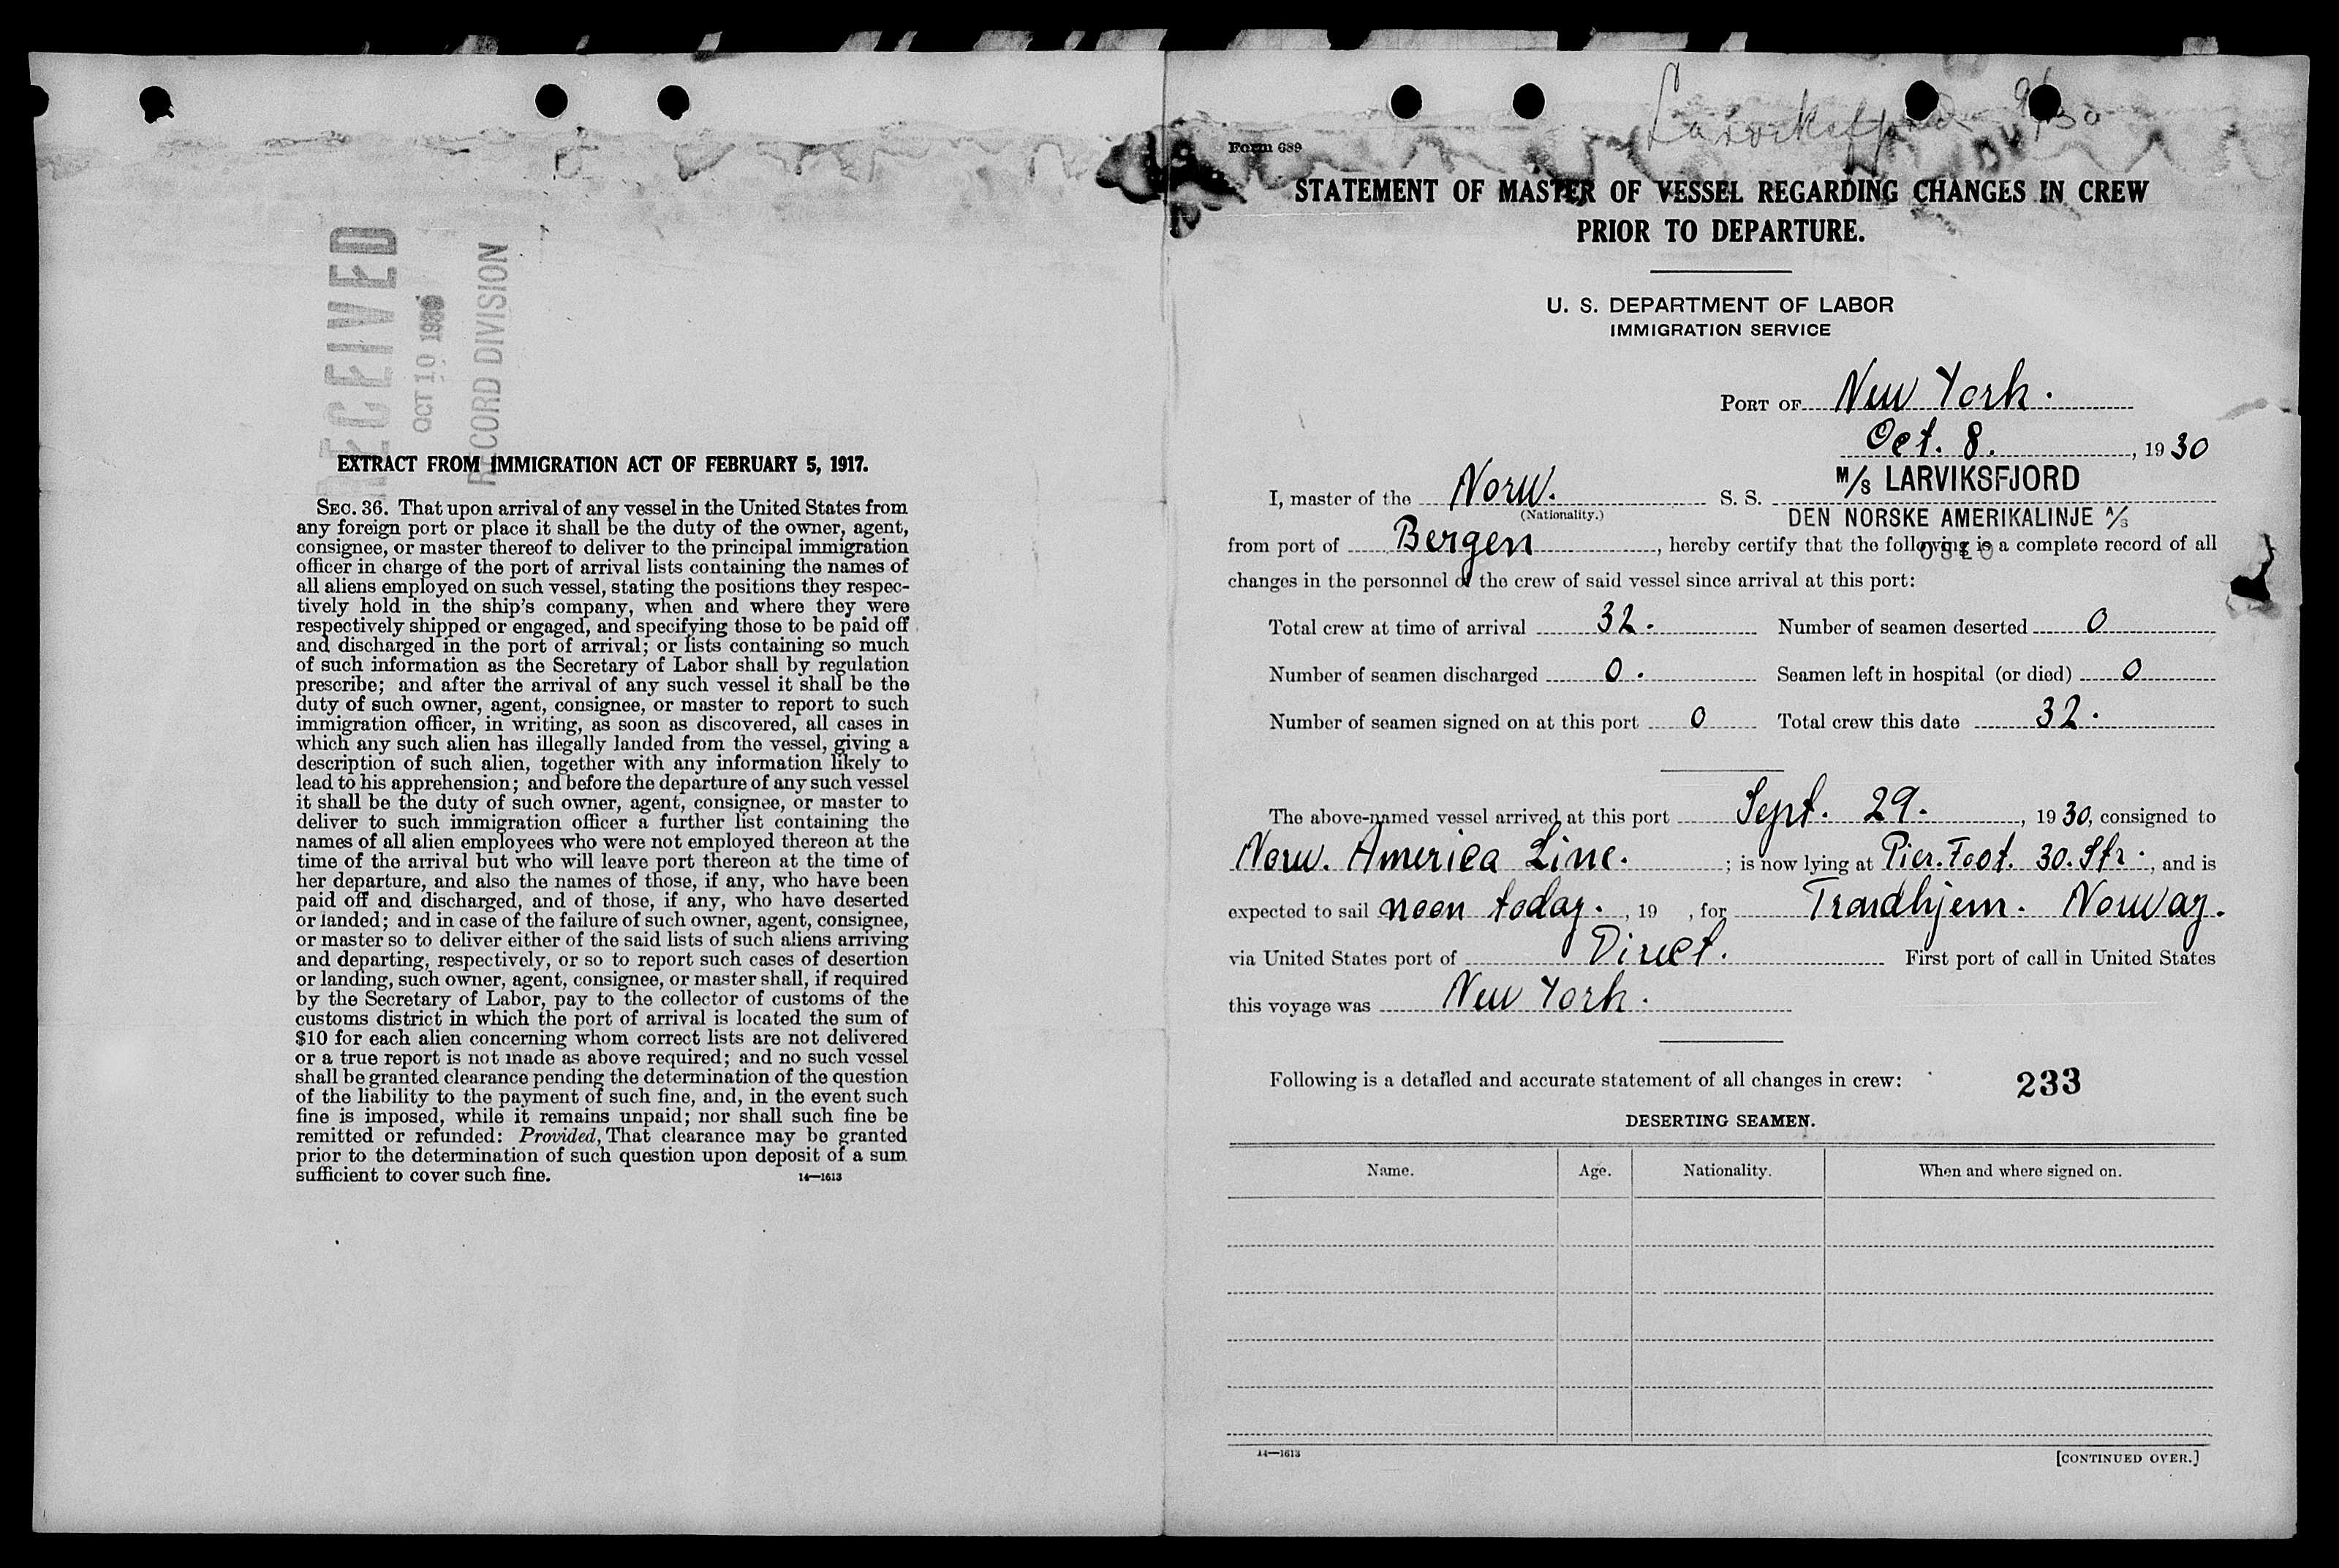 RECEIVED
OCT 10 1930
RECORD DIVISION
EXTRACT FROM IMMIGRATION ACT OF FEBRUARY 5, 1917.
SEC. 36. That upon arrival of any vessel in the United States from
any foreign port or place it shall be the duty of the owner, agent,
consignee, or master thereof to deliver to the principal immigration
officer in charge of the port of arrival lists containing the names of
all aliens employed on such vessel, stating the positions they respec-
tively hold in the ship's company, when and where they were
respectively shipped or engaged, and specifying those to be paid off
and discharged in the port of arrival; or lists containing so much
of such information as the Secretary of Labor shall by regulation
prescribe; and after the arrival of any such vessel it shall be the
duty of such owner, agent, consignee, or master to report to such
immigration officer, in writing, as soon as discovered, all cases in
which any such alien has illegally landed from the vessel, giving a
description of such alien, together with any information likely to
lead to his apprehension; and before the departure of any such vessel
it shall be the duty of such owner, agent, consignee, or master to
deliver to such immigration officer a further list containing the
names of all alien employees who were not employed thereon at the
time of the arrival but who will leave port thereon at the time of
her departure, and also the names of those, if any, who have been
paid off and discharged, and of those, if any, who have deserted
or landed; and in case of the failure of such owner, agent, consignee,
or master so to deliver either of the said lists of such aliens arriving
and departing, respectively, or so to report such cases of desertion
or landing, such owner, agent, consignee, or master shall, if required
by the Secretary of Labor, pay to the collector of customs of the
customs district in which the port of arrival is located the sum of
$10 for each alien concerning whom correct lists are not delivered
or a true report is not made as above required; and no such vessel
shall be granted clearance pending the determination of the question
of the liability to the payment of such fine, and, in the event such
fine is imposed, while it remains unpaid; nor shall such fine be
remitted or refunded: Provided, That clearance may be granted
prior to the determination of such question upon deposit of a sum
sufficient to cover such fine. 14—1613
Larviksfjord 9/30
Form 689
STATEMENT OF MASTER OF VESSEL REGARDING CHANGES IN CREW
PRIOR TO DEPARTURE.
U. S. DEPARTMENT OF LABOR
IMMIGRATION SERVICE
PORT OF New York.
Oct. 8. , 1930
I, master of the Norw. S. S. M/S LARVIKSFJORD
(Nationality.) DEN NORSKE AMERIKALINJE A/S
from port of Bergen, hereby certify that the following is a complete record of all
OSLO
changes in the personnel of the crew of said vessel since arrival at this port:
Total crew at time of arrival 32. Number of seamen deserted 0
Number of seamen discharged 0. Seamen left in hospital (or died) 0
Number of seamen signed on at this port 0 Total crew this date 32.
The above-named vessel arrived at this port Sept. 29. , 1930, consigned to
Norw. America Line. ; is now lying at Pier. Foot. 30. Str. , and is
expected to sail noon today. , 19 , for Trondhjem. Norway.
via United States port of Direct. First port of call in United States
this voyage was New York.
Following is a detailed and accurate statement of all changes in crew: 233
DESERTING SEAMEN.
Name. Age. Nationality. When and where signed on.
14—1613 [CONTINUED OVER.]